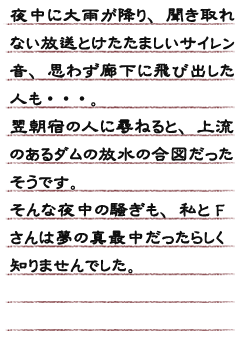 夜中に大雨が降り、聞き取れ
ない放送とけたたましいサイレン
音、思わず廊下に飛び出した
人も・・・。
翌朝宿の人に尋ねると、上流
のあるダムの放水の合図だった
そうです。
そんな夜中の騒ぎも、私とF
さんは夢の真最中だったらしく
知りませんでした。